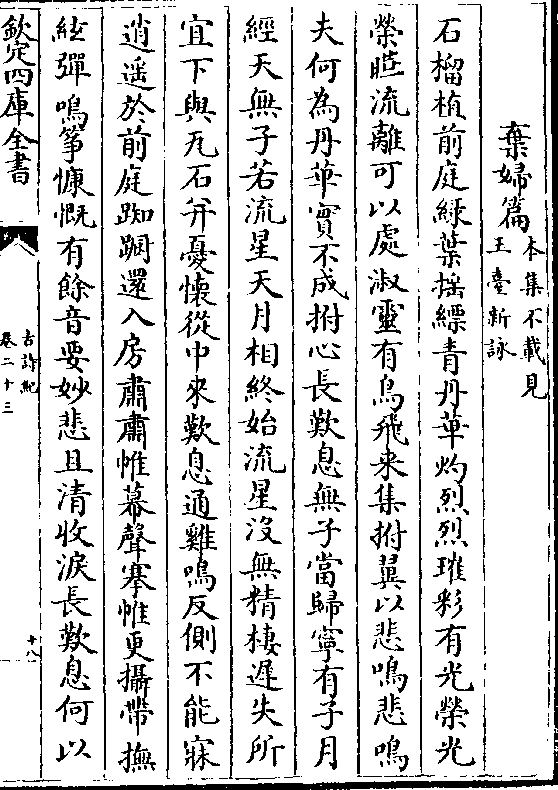 棄婦篇
本集不載見
玉臺新詠
石榴植前庭綠葉揺縹青丹華灼烈烈璀彩有光榮光
榮曄流離可以處淑靈有鳥飛来集拊翼以悲鳴悲鳴
夫何為丹華實不成拊心長歎息無子當歸寧有子月
經天無子若流星天月相終始流星沒無精棲遲失所
宜下與瓦石并憂懷從中來歎息通雞鳴反側不能寐
逍遥於前庭踟躕還入房肅肅帷幕聲搴帷更攝帶撫
絃彈鳴筝慷慨有餘音要妙悲且清收淚長歎息何以
欽定四庫全書
古詩紀
卷二十三
十八